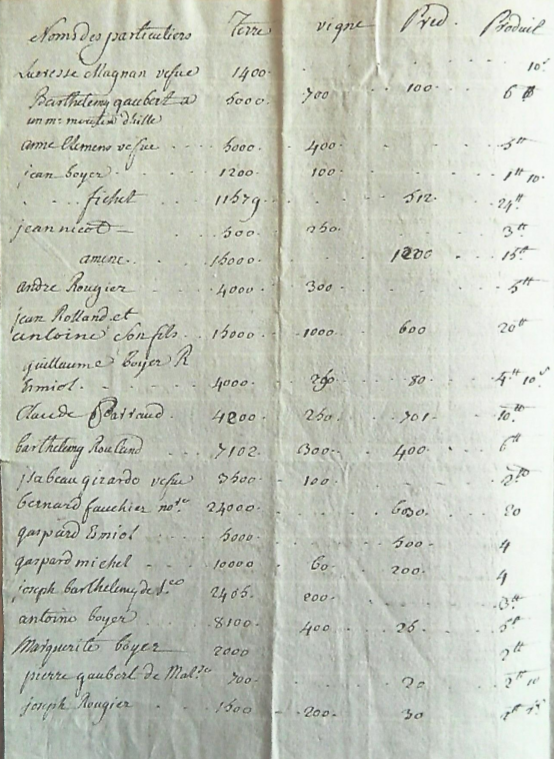 Noms des particuliers Terre vigne Pred. Produit
Lucresse Magnan vefue 1400 10s
Barthelemy gaubert a 5000 700 100 6
un mr moutin d'hille
anne Clemens vefue 5000 400 5tt
jean boyer 1200 100 1tt 10
fichet 11579 512 24tt
jean nicot 500 250 3tt
amenc 15000 1200 15tt
andre Rougier 4000 300 5tt
jean Rolland et
antoine son fils 15000 1000 600 20tt
guillaume boyer R
Esmiol 4000 80 4tt 10s
Claude 4200 250 701 10tt
barthelemy Rouland 7102 300 400 6tt
jsabeau girardo vefue 3500 100 2tt
bernard fauchier nore 24000 6030 20
gaspard Esmiol 5000 500 4
gaspard michel 10000 60 200 4
joseph barthelemy de 2405 200 3tt
antoine boyer 8100 400 25 5tt
Marguerite boyer 2000 2tt
pierre gaubert de 700 20 2tt 10
joseph Rougier 1500 200 30